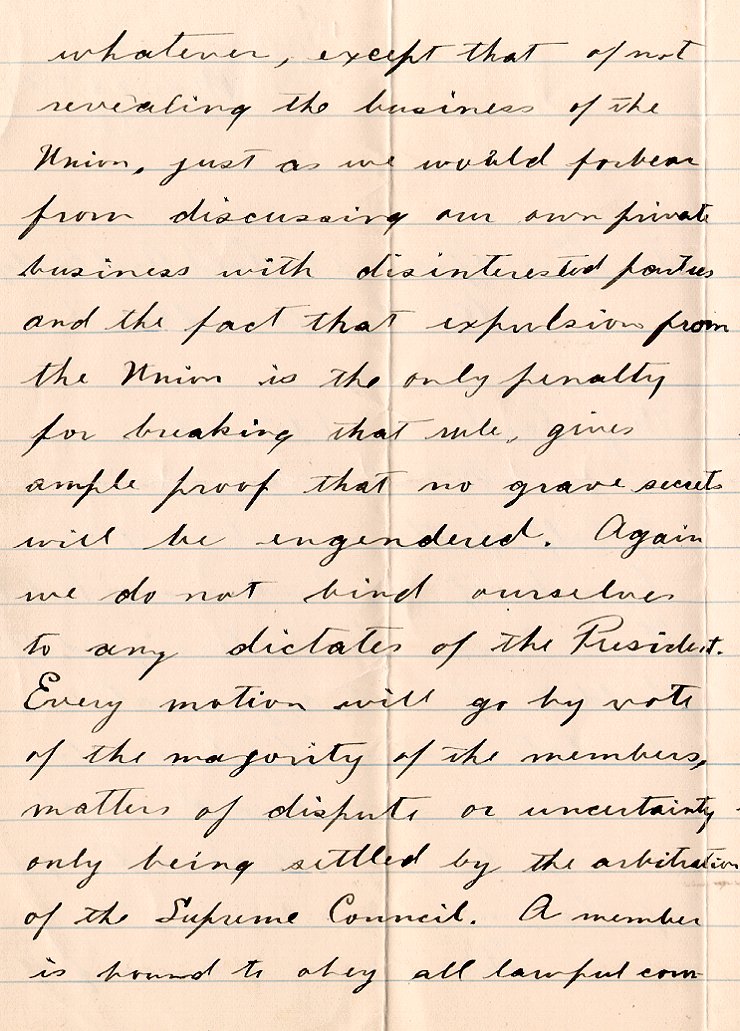 whatever, except that of not
revealing the business of the
Union, just as we would forbear
from discussing our own private
business with disinterested parties
and the fact that expulsion from
the Union is the only penalty
for breaking that rule, gives
ample proof that no grave secrets
will be engendered. Again
we do not bind ourselves
to any dictates of the President.
Every motion will go by vote
of the majority of the members,
matters of dispute or uncertainty
only being settled by the arbitration
of the Supreme Council. A member
is bound to obey all lawful com-